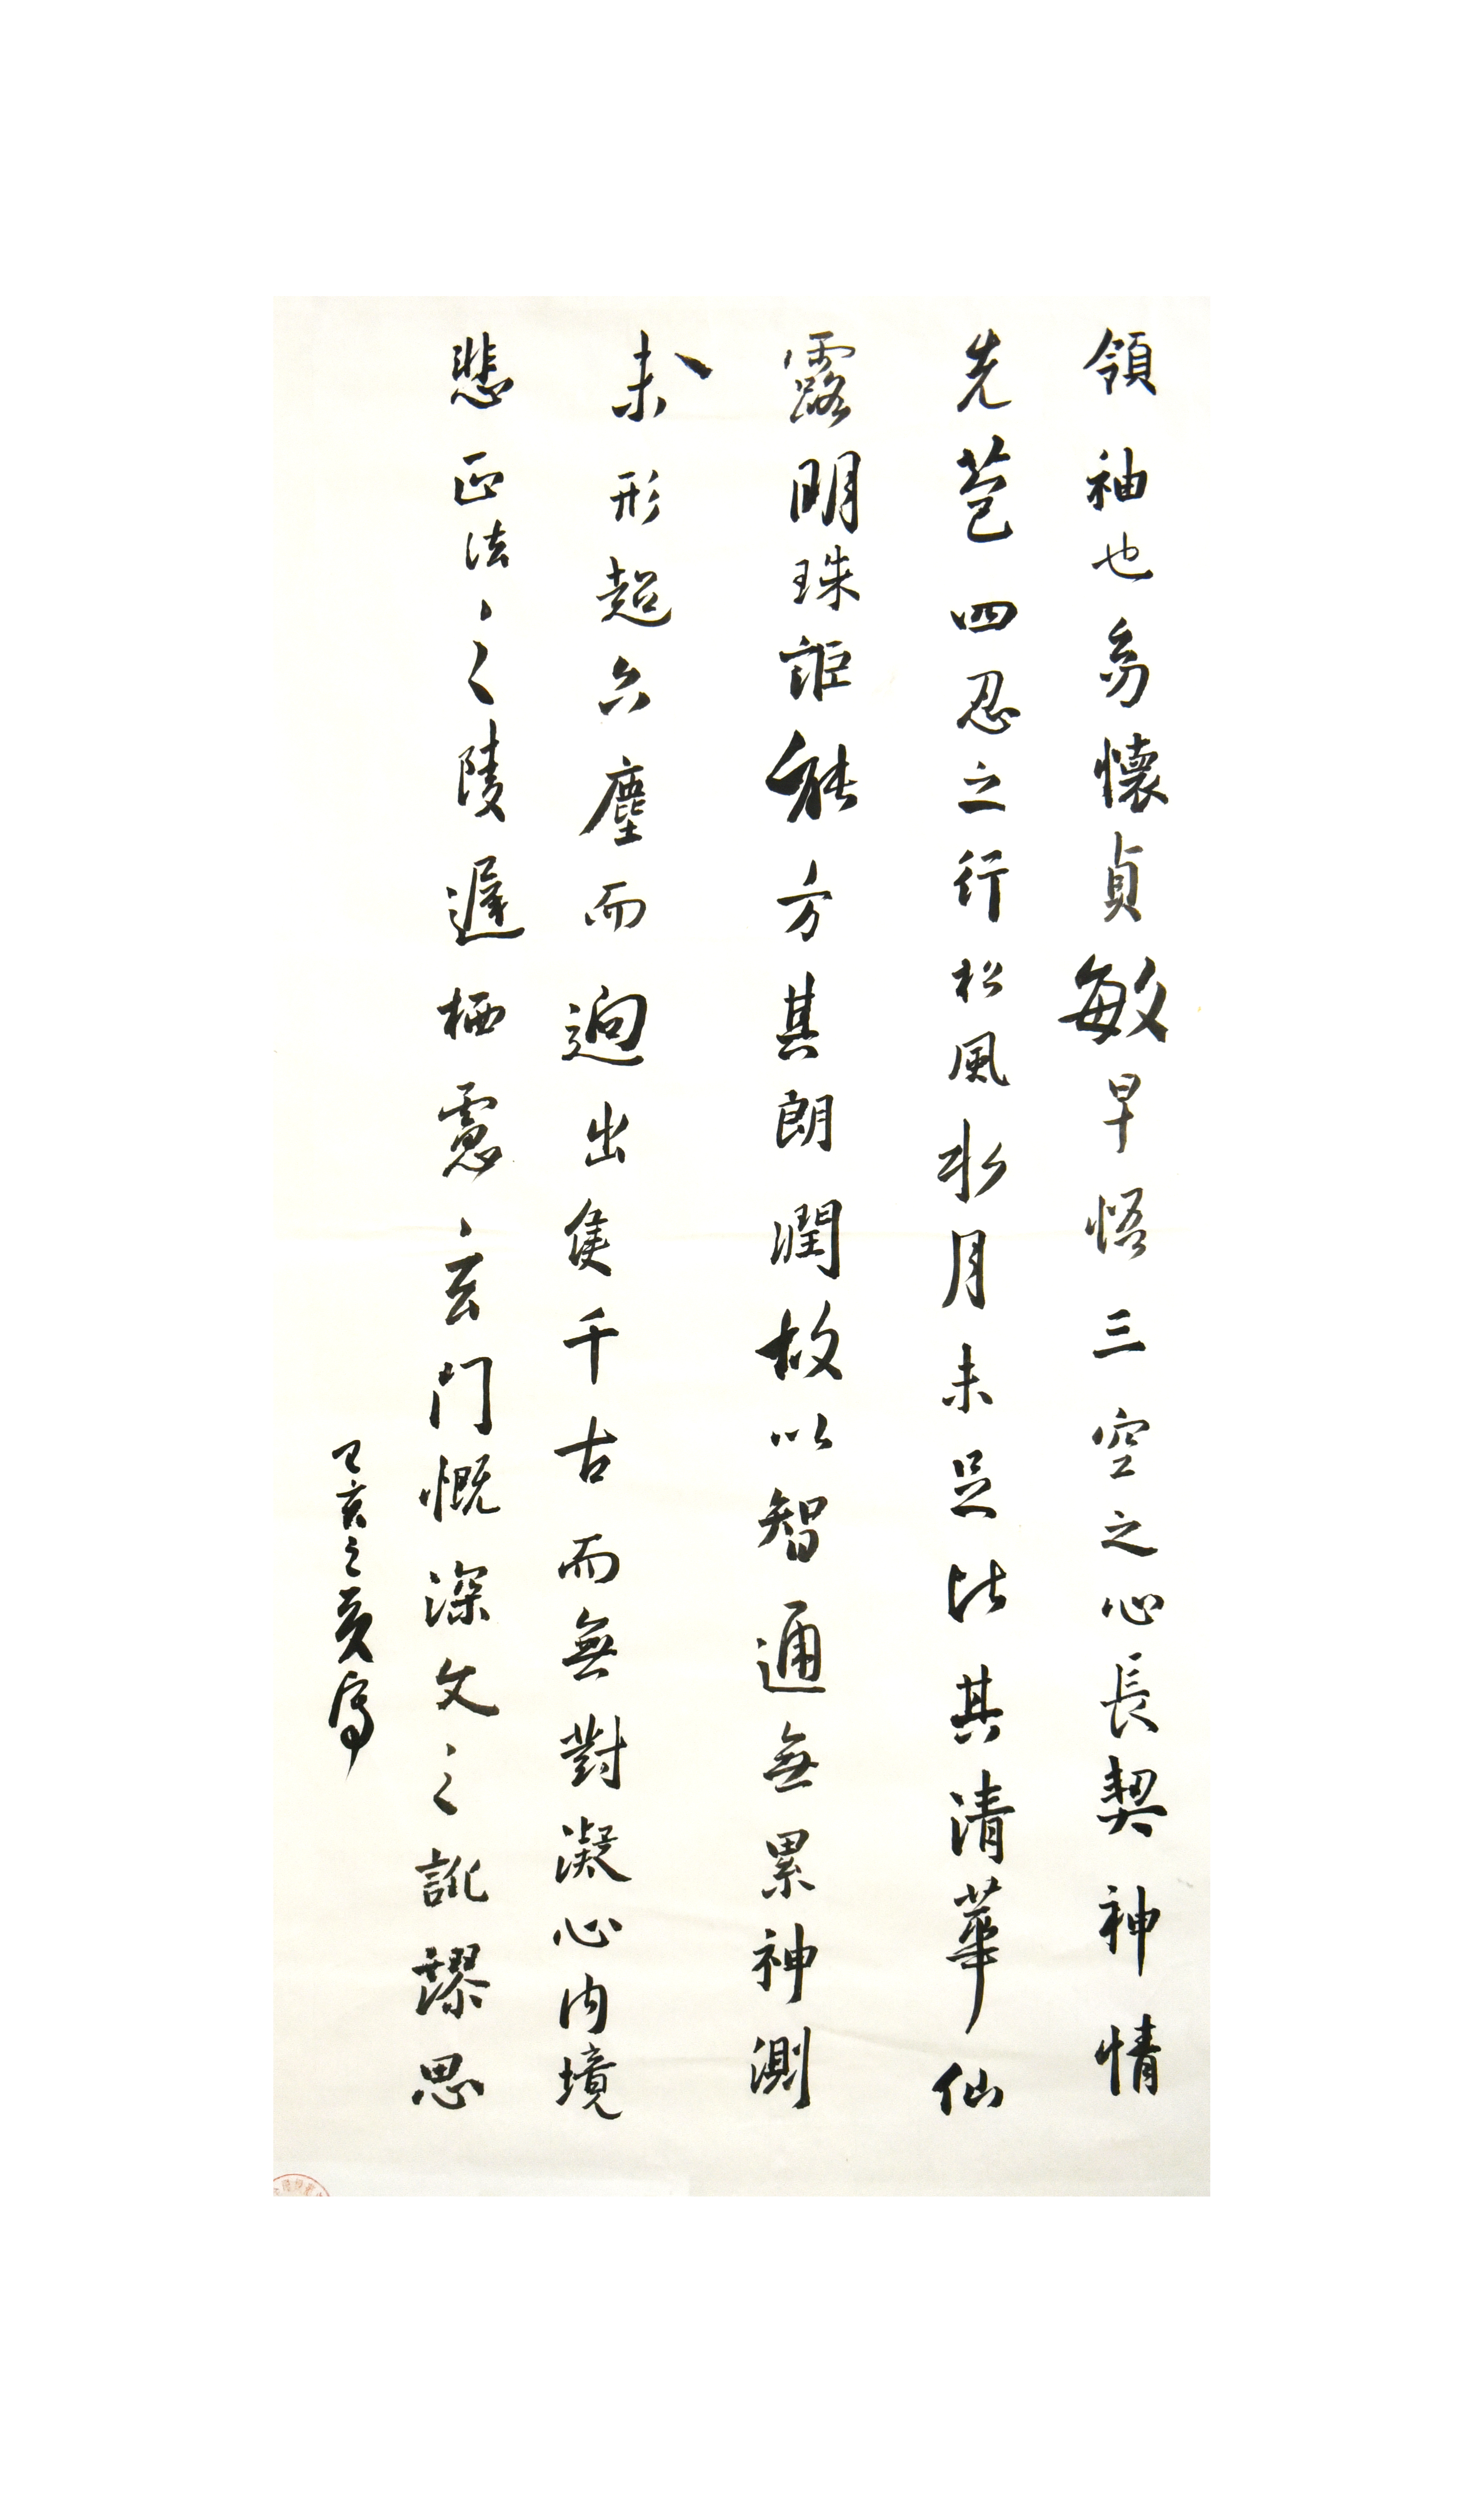 領袖也幼懷貞敏早悟三空之心長契神情
先苞四忍之行松風水月未足比其清華仙
露明珠詎能方其朗潤故以智通無累神測
未形超六塵而迥出隻千古而無對凝心內境
悲正法之陵遲栖慮玄門慨深文之訛謬思
亥之夏